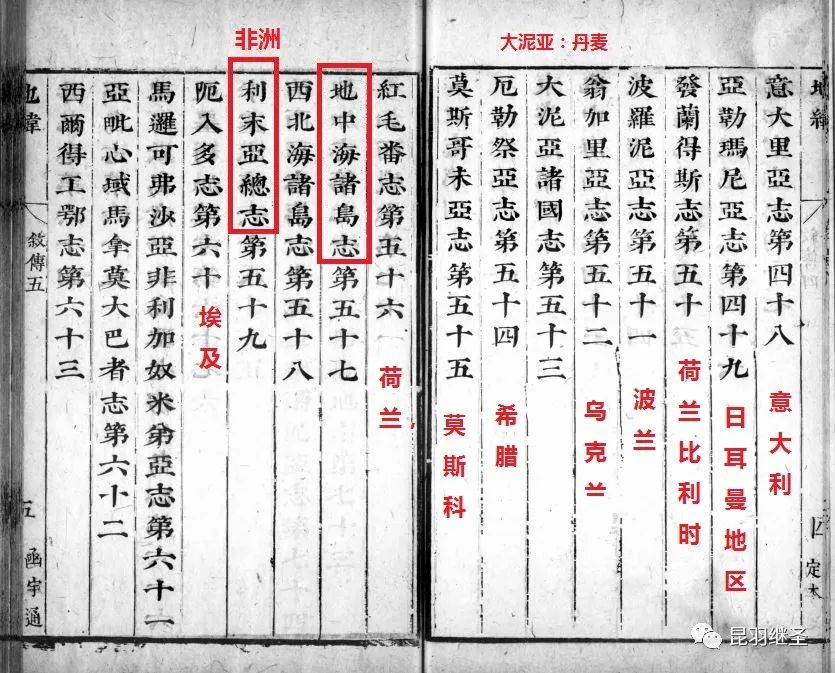 非洲
大泥亚：丹麦
地緯
意大里亞志第四十八
亞勒瑪尼亞志第四十九
發蘭得斯志第五十
波羅泥亞志第五十一
翁加里亞志第五十二
大泥亞諸國志第五十三
厄勒祭亞志第五十四
莫斯哥未亞志第五十五
意大利
日耳曼地区
荷兰比利时
波兰
乌克兰
希腊
莫斯科
四
定本
紅毛番志第五十六
地中海諸島志第五十七
西北海諸島志第五十八
利未亞總志第五十九
阨入多志第六十
馬邏可弗沙亞非利加奴米第亞志第六十一
亞毗心域馬拿莫大巴者志第六十二
西爾得工鄂志第六十三
荷兰,
埃及
地緯
敘傳五
五
函宇通
昆羽继圣